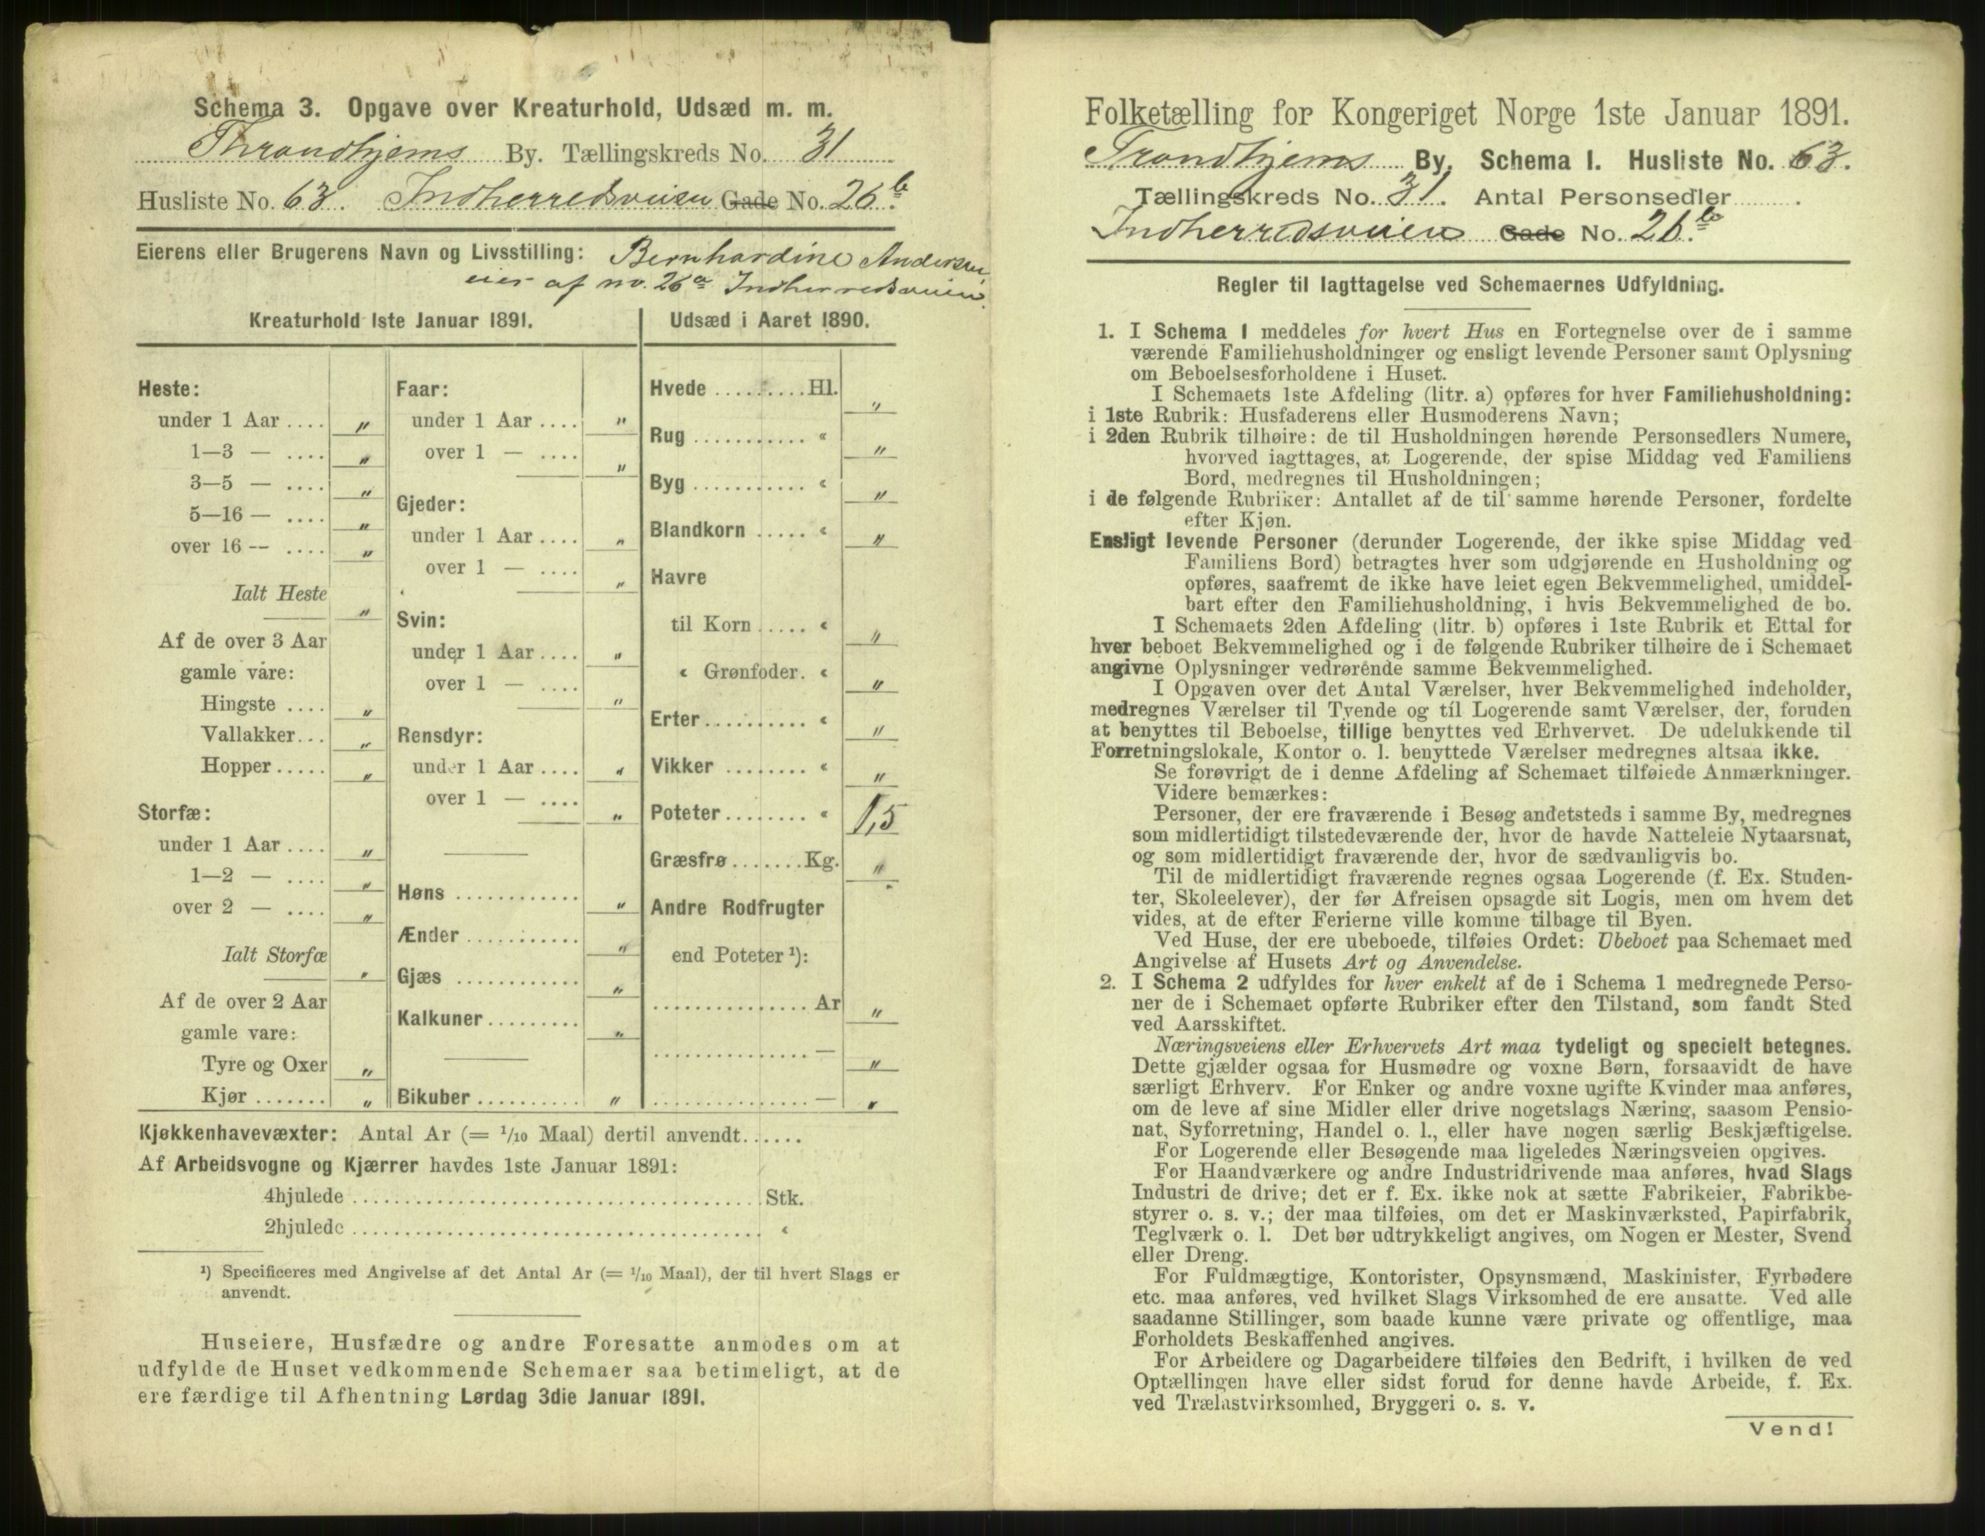 Schema 3. Opgave over Kreaturhold, Udsæd m. m.
Throndhjems By. Tællingskreds No. 31
Husliste No. 63. Indherredsveien Gade No. 26b.
Eierens eller Brugerens Navn og Livsstilling: Bernhardine Andersen
eier af no. 26a Indherredsveien.
Kreaturhold 1ste Januar 1891.
Heste:
under 1 Aar .... "
1—3 — .... "
3—5 — .... "
5—16 — .... "
over 16 — .... "
Ialt Heste "
Af de over 3 Aar
gamle vare:
Hingste .... "
Vallakker... "
Hopper ..... "
Storfæ:
under 1 Aar .... "
1—2 — .... "
over 2 — .... "
Ialt Storfæ "
Af de over 2 Aar
gamle vare:
Tyre og Oxer "
Kjør ....... "
Faar:
under 1 Aar .... "
over 1 — .... "
Gjeder:
under 1 Aar .... "
over 1 — .... "
Svin:
under 1 Aar .... "
over 1 — .... "
Rensdyr:
under 1 Aar .... "
over 1 — .... "
Høns ........... "
Ænder .......... "
Gjæs ........... "
Kalkuner........ "
Bikuber ......... "
Udsæd i Aaret 1890.
Hvede ........ Hl. "
Rug .......... « "
Byg .......... « "
Blandkorn ..... « "
Havre
til Korn ..... « "
« Grønfoder. « "
Erter ......... « "
Vikker ........ « "
Poteter ........ « 1,5
Græsfrø ....... Kg. "
Andre Rodfrugter
end Poteter ¹):
............... Ar "
............... — "
............... — "
Kjøkkenhavevæxter: Antal Ar (= 1/10 Maal) dertil anvendt......
Af Arbeidsvogne og Kjærrer havdes 1ste Januar 1891:
4hjulede ........................................ Stk.
2hjulede ........................................ «
¹) Specificeres med Angivelse af det Antal Ar (= 1/10 Maal), der til hvert Slags er
anvendt.
Huseiere, Husfædre og andre Foresatte anmodes om at
udfylde de Huset vedkommende Schemaer saa betimeligt, at de
ere færdige til Afhentning Lørdag 3die Januar 1891.
Folketælling for Kongeriget Norge 1ste Januar 1891.
Trondhjems By. Schema 1. Husliste No. 63.
Tællingskreds No. 31. Antal Personsedler ........
Indherredsveien Gade No. 26b.
Regler til Iagttagelse ved Schemaernes Udfyldning.
1. I Schema 1 meddeles for hvert Hus en Fortegnelse over de i samme
værende Familiehusholdninger og ensligt levende Personer samt Oplysning
om Beboelsesforholdene i Huset.
I Schemaets 1ste Afdeling (litr. a) opføres for hver Familiehusholdning:
i 1ste Rubrik: Husfaderens eller Husmoderens Navn;
i 2den Rubrik tilhøire: de til Husholdningen hørende Personsedlers Numere,
hvorved iagttages, at Logerende, der spise Middag ved Familiens
Bord, medregnes til Husholdningen;
i de følgende Rubriker: Antallet af de til samme hørende Personer, fordelte
efter Kjøn.
Ensligt levende Personer (derunder Logerende, der ikke spise Middag ved
Familiens Bord) betragtes hver som udgjørende en Husholdning og
opføres, saafremt de ikke have leiet egen Bekvemmelighed, umiddel-
bart efter den Familiehusholdning, i hvis Bekvemmelighed de bo.
I Schemaets 2den Afdeling (litr. b) opføres i 1ste Rubrik et Ettal for
hver beboet Bekvemmelighed og i de følgende Rubriker tilhøire de i Schemaet
angivne Oplysninger vedrørende samme Bekvemmelighed.
I Opgaven over det Antal Værelser, hver Bekvemmelighed indeholder,
medregnes Værelser til Tyende og til Logerende samt Værelser, der, foruden
at benyttes til Beboelse, tillige benyttes ved Erhvervet. De udelukkende til
Forretningslokale, Kontor o. l. benyttede Værelser medregnes altsaa ikke.
Se forøvrigt de i denne Afdeling af Schemaet tilføiede Anmærkninger.
Videre bemærkes:
Personer, der ere fraværende i Besøg andetsteds i samme By, medregnes
som midlertidigt tilstedeværende der, hvor de havde Natteleie Nytaarsnat,
og som midlertidigt fraværende der, hvor de sædvanligvis bo.
Til de midlertidigt fraværende regnes ogsaa Logerende (f. Ex. Studen-
ter, Skoleelever), der før Afreisen opsagde sit Logis, men om hvem det
vides, at de efter Ferierne ville komme tilbage til Byen.
Ved Huse, der ere ubeboede, tilføies Ordet: Ubeboet paa Schemaet med
Angivelse af Husets Art og Anvendelse.
2. I Schema 2 udfyldes for hver enkelt af de i Schema 1 medregnede Perso-
ner de i Schemaet opførte Rubriker efter den Tilstand, som fandt Sted
ved Aarsskiftet.
Næringsveiens eller Erhvervets Art maa tydeligt og specielt betegnes.
Dette gjælder ogsaa for Husmødre og voxne Børn, forsaavidt de have
særligt Erhverv. For Enker og andre voxne ugifte Kvinder maa anføres,
om de leve af sine Midler eller drive nogetslags Næring, saasom Pensio-
nat, Syforretning, Handel o. l., eller have nogen særlig Beskjæftigelse.
For Logerende eller Besøgende maa ligeledes Næringsveien opgives.
For Haandværkere og andre Industridrivende maa anføres, hvad Slags
Industri de drive; det er f. Ex. ikke nok at sætte Fabrikeier, Fabrikbe-
styrer o. s. v.; der maa tilføies, om det er Maskinværksted, Papirfabrik,
Teglværk o. l. Det bør udtrykkeligt angives, om Nogen er Mester, Svend
eller Dreng.
For Fuldmægtige, Kontorister, Opsynsmænd, Maskinister, Fyrbødere
etc. maa anføres, ved hvilket Slags Virksomhed de ere ansatte. Ved alle
saadanne Stillinger, som baade kunne være private og offentlige, maa
Forholdets Beskaffenhed angives.
For Arbeidere og Dagarbeidere tilføies den Bedrift, i hvilken de ved
Optællingen have eller sidst forud for denne havde Arbeide, f. Ex.
ved Trælastvirksomhed, Bryggeri o. s. v.
Vend!